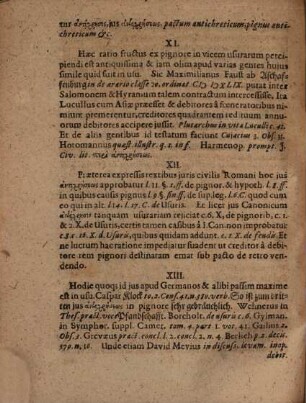 XI.
Hæc ratio fructus ex pignore in vicem usurarum percipi-
endi est antiquissima & jam olim apud varias gentes hujus
simile quid fuit in usu. Sic Maximilianus Faust ab Aschaf-
fenburg in de ærario classe 20. ordinat. puta inter
Salomonem & Hyranum talem contractum intercessisse. Ita
Lucullus cum Asiæ præesset & debitores à fœneratoribus nimi-
um premerentur, creditores quadrantem redituum annu-
orum debitores accipere jussit. Plutarchus in vita Luculli c. 41.
Et de aliis gentibus id testatum faciunt Cujacius 3. Obs. 35.
Hotomannus quæst. illustr. q. 2. in f. Harmenop. prompt. J.
XII.
Præterea expressis textibus juris civilis Romani hoc jus
approbatur l. 11. §. 1. ff. de pignor. & hypoth. l. 8. ff.
in quibus causis pignus l. §. fin. ff. de sup. leg. l. 2. C. quod cum
eo qui in alt. l. 14. l. 17. C. de Usuris. Et licet jus Canonicum
tanquam usurariam resciat c. 6. X. de pignorib. c. 1.
& 2. X. de Usuris, certis tamen casibus à J. Can. non improbatur
Et
ne luctum hac ratione impediatur student ut creditor à debi-
tore rem pignori destinatam emat sub pacto de retro ven-
dendo.
XIII.
Hodie quoq; id jus apud Germanos & alibi passim maxime
est in usu. Caspar Klock
in pignore sehr gebräuchlich. Wehnerus in
Thes. pract. voce Pfandschafft. Borcholt. de usuris c. 6. Gylman.
in Symphor. suppl. Camer. tom. 4. part 1. vot. 41. Gailius 2.
Obs. 3. Grevæus pract. concl. l. 2. concl. 2. n. 4. Berlich p. 2. decis.
179. n. 16. Unde etiam David Mevius in discuss. levam. inop.
debit.